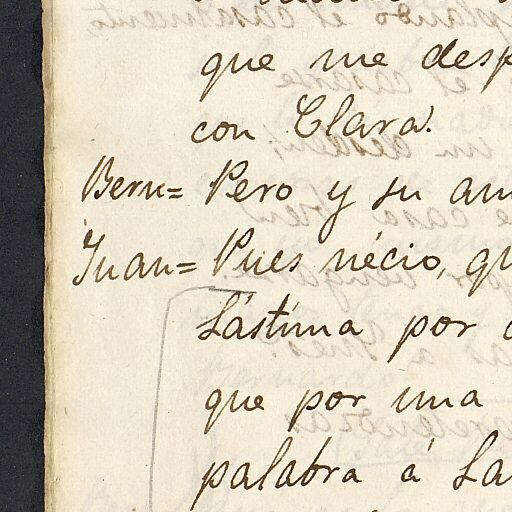 que me desp
con Clara.
Bern= Pero y su am
Juan= Pues nécio, qu
Lástima por
que por una
palabra á La